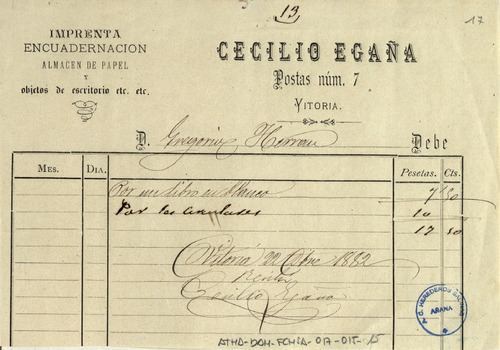 13
17
IMPRENTA
ENCUADERNACION
ALMACEN DE PAPEL
Y
objetos de escritorio etc. etc.
CECILIO EGAÑA
Postas núm. 7
VITORIA.
D. Gregorio Herran Debe
MES. DIA. Pesetas. Cts.
Por un libro en blanco 7 50
Por las circulares 10
17 50
Vitoria 22 1882
Cecilio Egaña
HEREDEROS
ARANA
ATHA-DOH-FCHIA-017-015-15